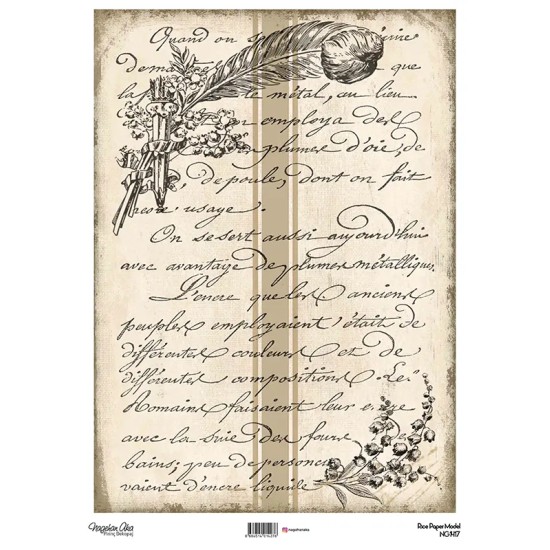 Quand on s
dem que
la le métal, au lieu
on employa des
plumes d'oie, de
, de poule, dont on fait
encore usage.
On se sert aussi aujourd'hui
avec avantage de plumes métalliques.
L'encre que les anciens
peuples employaient était de
différentes couleurs et de
différentes compositions. Les
Romains faisaient leur encre
avec la suie des fours
bains; peu de personnes
vaient d'encre liquide
Nagehan Oka
nagehanoka
Rice Paper Model
NG1417